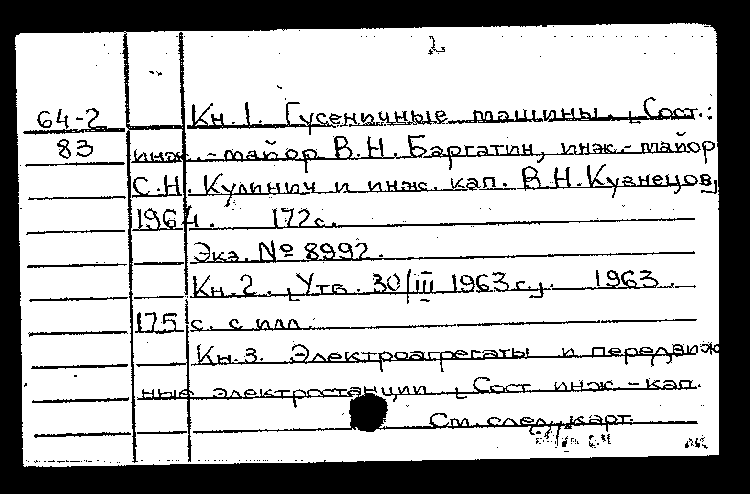 2
64-2 Кн.1. Гусеничные машины. [Сост.:
83 инж.-майор В.Н. Баргатин, инж.-майор
С.Н. Кулинич и инж. кап. В.Н.Кузнецов]
1964. 172с.
Экз. № 8992.
Кн.2. [Утв. 30/III 1963 г.]. 1963.
175 с. с илл.
Кн.3. Электроагрегаты и передвиж
ные электростанции [Сост инж.-кап.
См. след. карт.